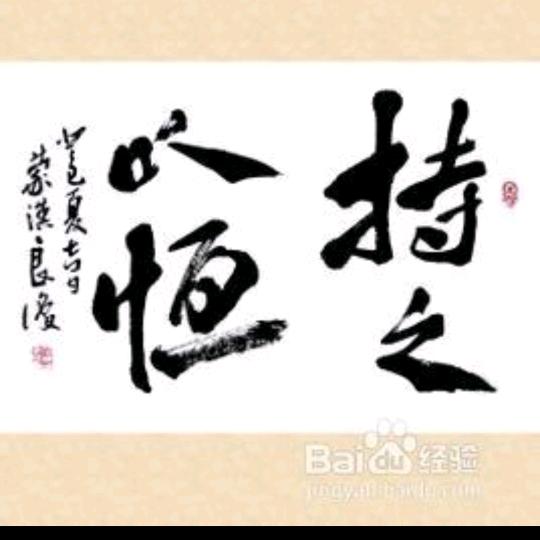 持之
以恒
夏吉日
Baidu经验
jingyan.baidu.com